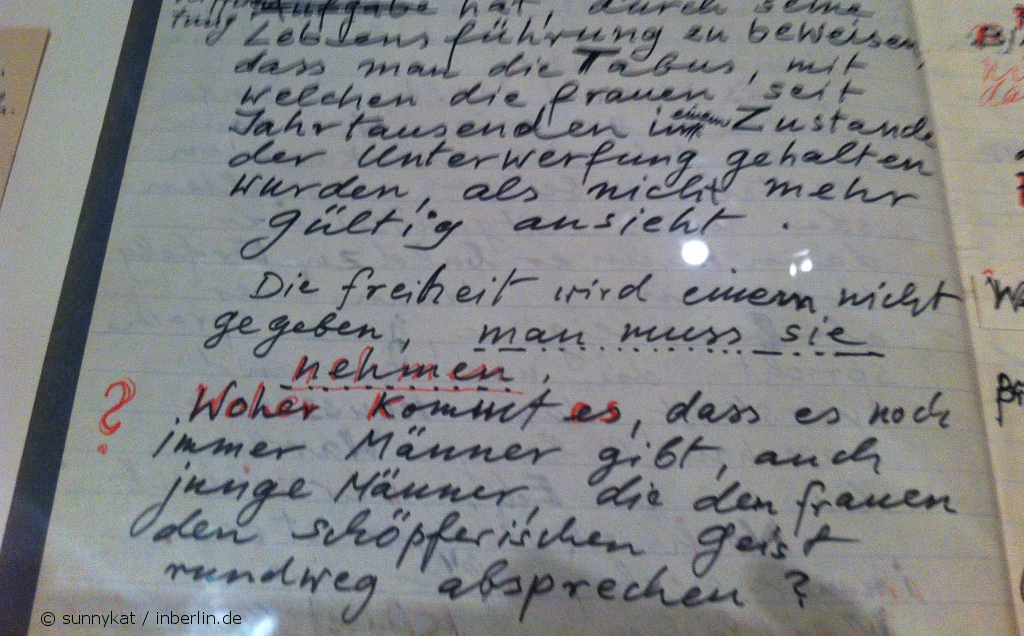 tung Aufgabe hat, durch seine
Lebensführung zu beweisen,
dass man die Tabus, mit
welchen die Frauen seit
Jahrtausenden im einem Zustande
der Unterwerfung gehalten
wurden, als nicht mehr
gültig ansieht.
Die Freiheit wird einem nicht
gegeben, man muss sie
nehmen.
? Woher kommt es, dass es noch
immer Männer gibt, auch
junge Männer, die den Frauen
den schöpferischen Geist
rundweg absprechen?
© sunnykat / inberlin.de